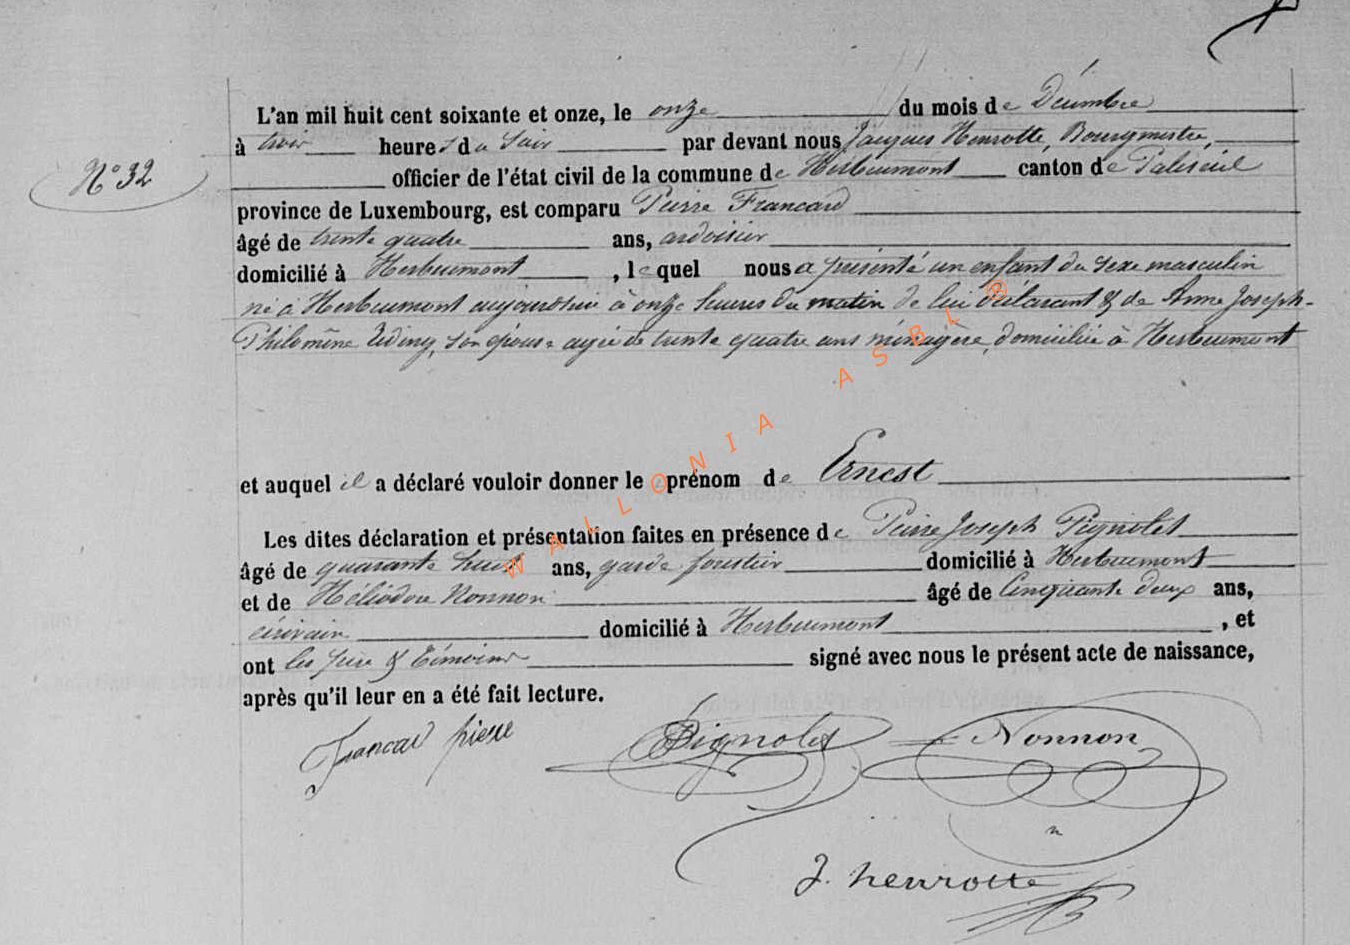 L'an mil huit cent soixante et onze, le onze du mois de Décembre
à trois heures du Soir par devant nous Jacques Henrotte, Bourgmestre,
N° 32
officier de l'état civil de la commune de Herbeumont canton de Paliseul
province de Luxembourg, est comparu Pierre Francard
âgé de trente quatre ans, ardoisier
domicilié à Herbeumont, lequel nous a présenté un enfant du sexe masculin
né à Herbeumont aujourd'hui à onze heures du matin de lui déclarant & de Anne Joseph-
Philomène son épouse agée de trente quatre ans ménagère, domiciliée à Herbeumont
et auquel il a déclaré vouloir donner le prénom de Ernest
Les dites déclaration et présentation faites en présence de Pierre Joseph Pignolet
âgé de quarante huit ans, garde forestier domicilié à Herbeumont
et de Héliodore Nonnon âgé de Cinquante deux ans,
écrivain domicilié à Herbeumont, et
ont les père & témoins signé avec nous le présent acte de naissance,
après qu'il leur en a été fait lecture.
Francar pierre Pignolet Nonnon
J. henrotte
WALLONIA ASBL ®